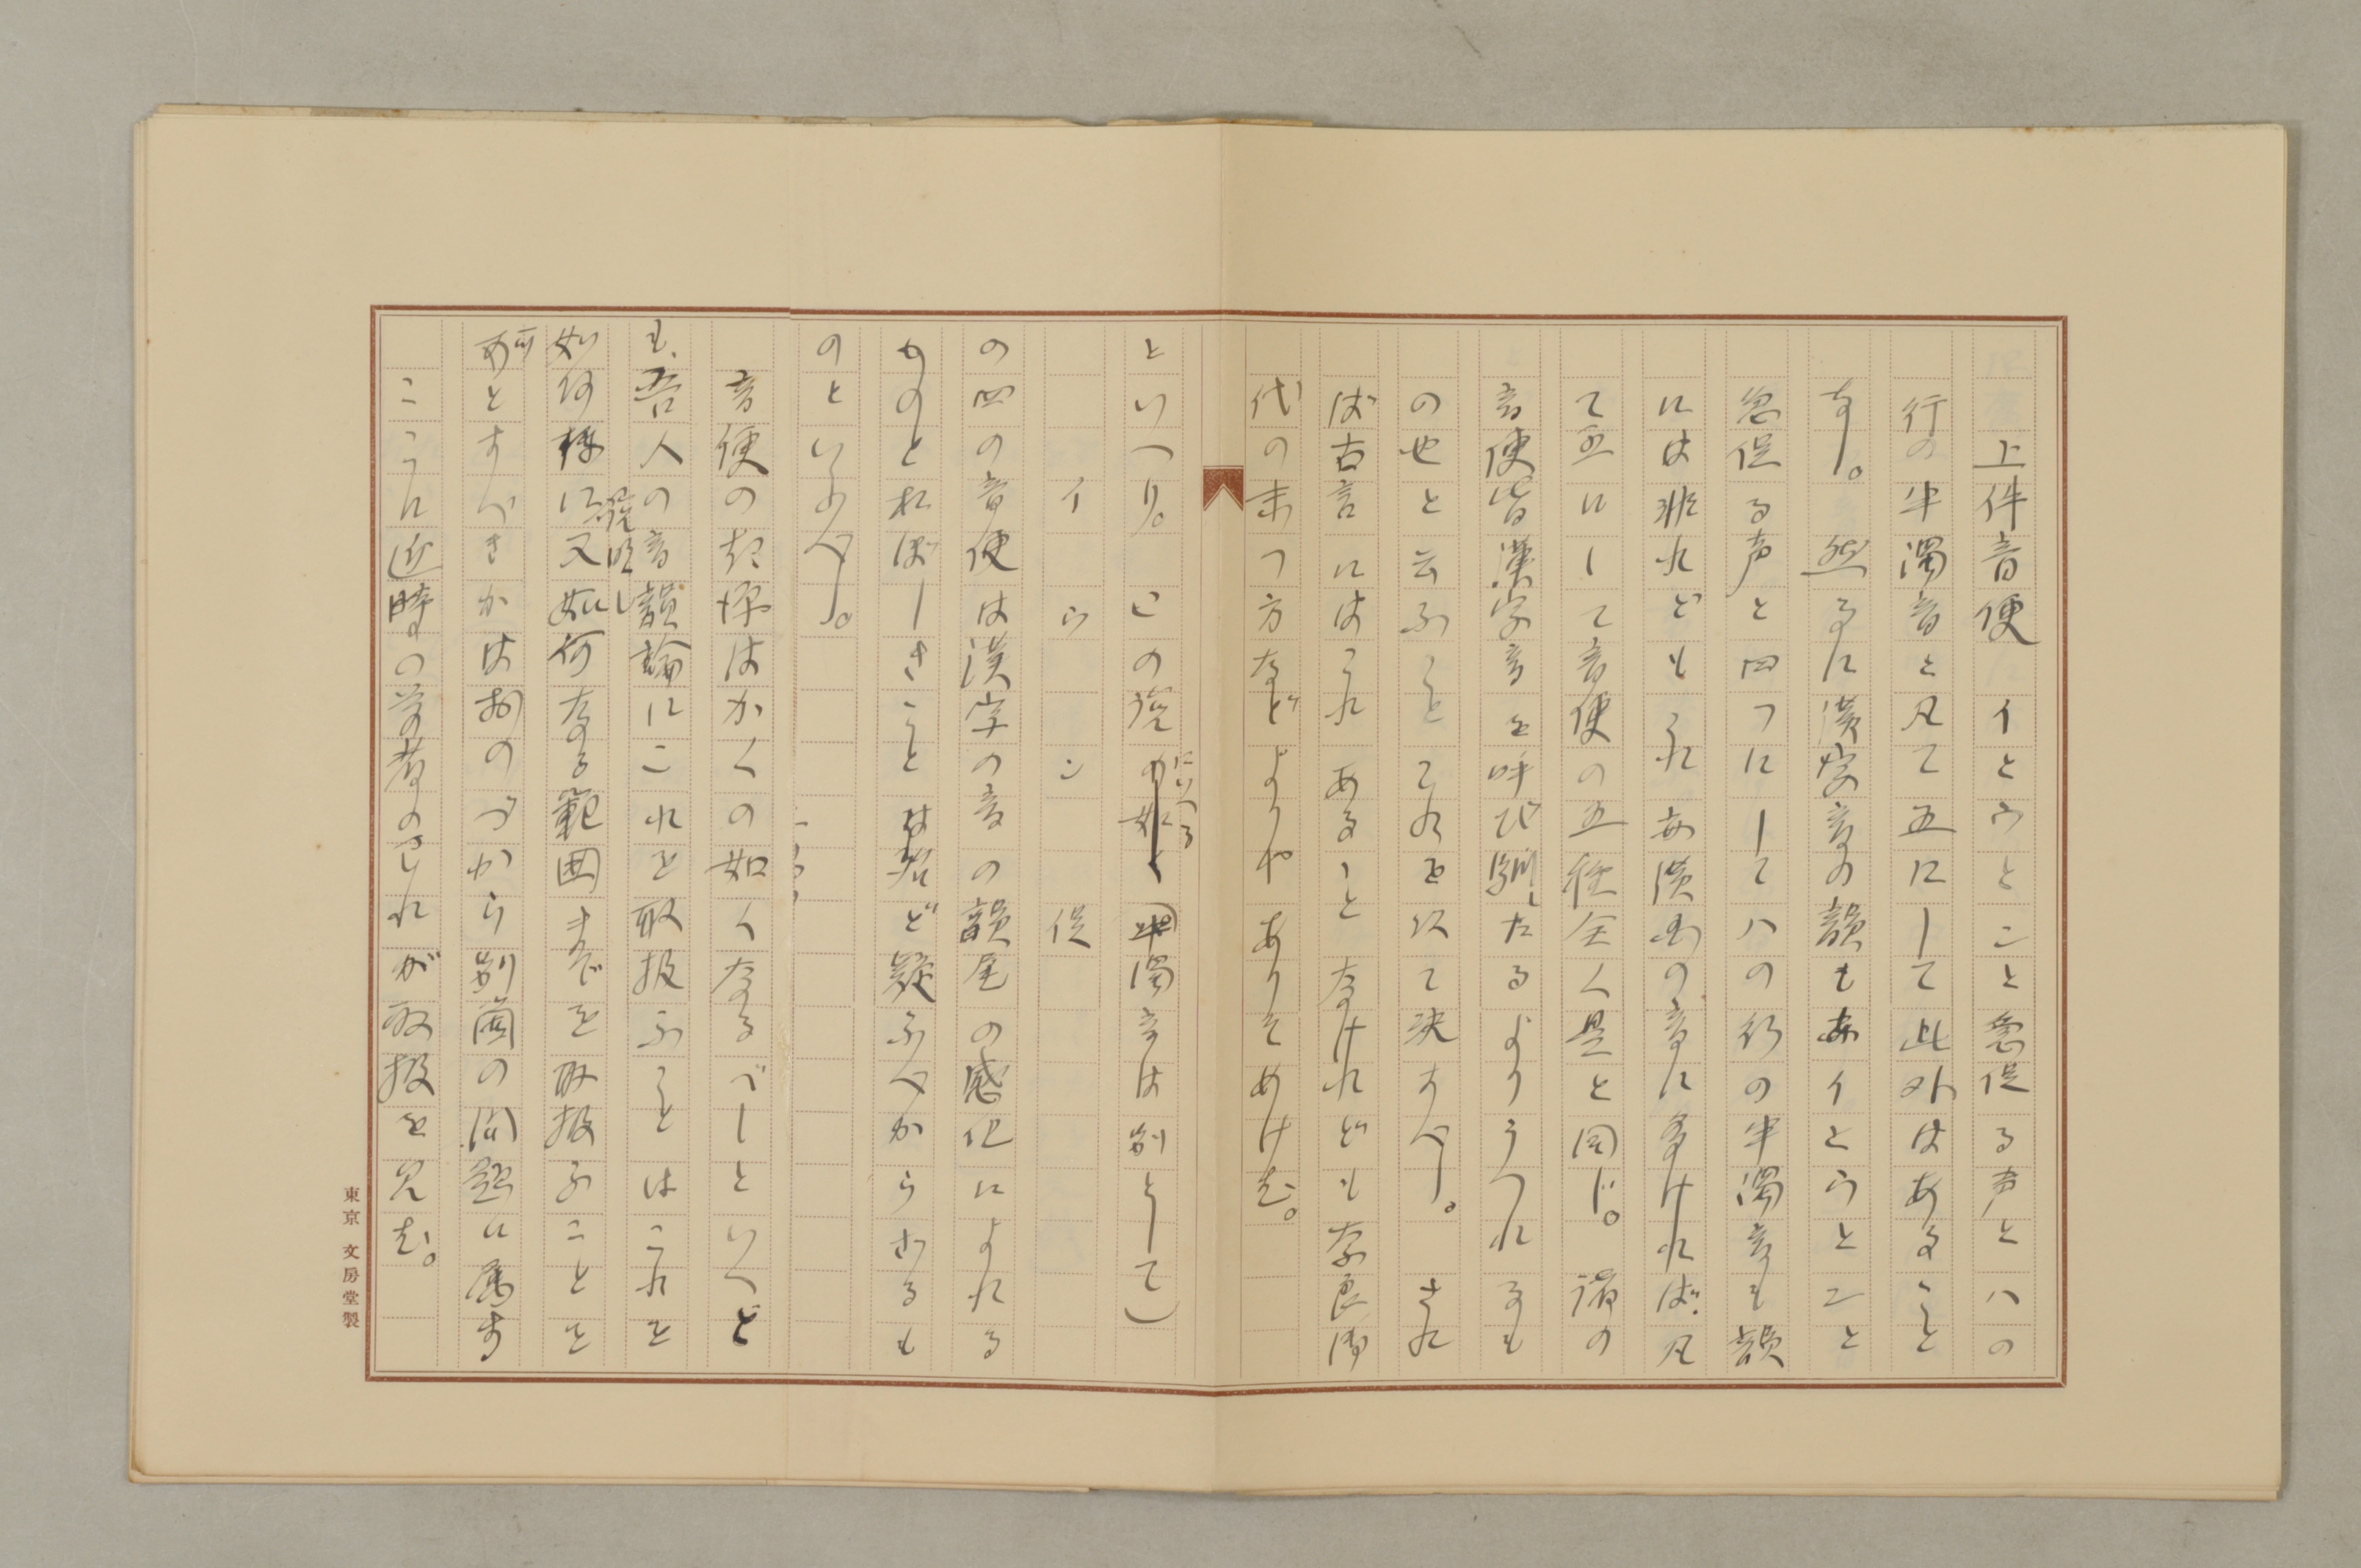 上件音便　イとウとンと急促る声とハの
行の半濁音と凡て五にして此外はあること
なし。　然るに漢字音の韻も亦イとウとンと
急促る声と四つにしてハの行の半濁音も韻
には非れどもこれ亦漢国の音に多ければ、凡
て五にして音便の五種全く是と同じ。諸の
音便皆漢字音を呼び馴したるよりうつれるも
の也と云ふことこれを以て決すべし。　され
ば古言にはこれあることなけれども奈良御
代の末つ方などよりやありそめけむ。
といへり。　この説にいへる（半濁音は別として）
イ　ウ　ン　促
の四の音便は漢字の音の韻尾の感化によれる
ものとおぼしきことは殆ど疑ふべからざるも
のといふべし。
音便の起源はかくの如くなるべしといへど
も、吾人の音韻論にこれを取扱ふことはこれを
如何様に説明し又如何なる範囲までを取扱ふことを
可とすべきかはおのづから別箇の問題に属す
ここに近時の学者のこれが取扱を見む。
東京　文房堂製